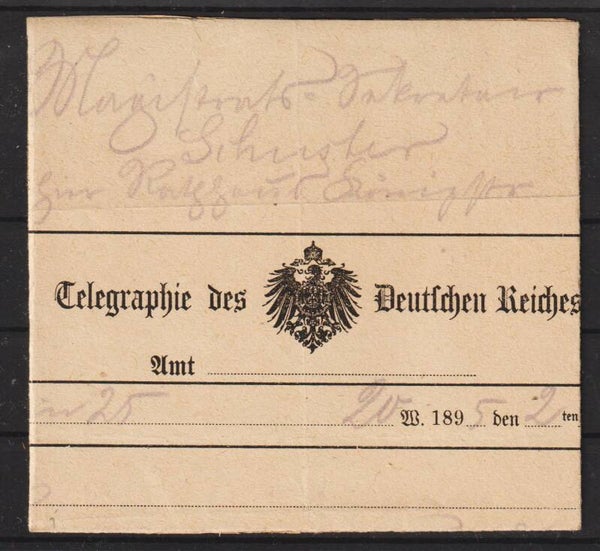 Magistrats-Sekretair
Schuster
Rathhaus Königstr
Telegraphie des Deutschen Reiches
Amt
25 20 W. 1895 den 2ten